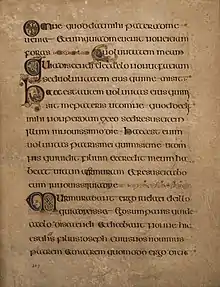 Omne quod dat mihi pater ad me
ueniet et eum qui uenit ad me non
foras uoluntatem meam
Quia discendi de caelo non ut faciam
sed uoluntatem eius qui me misit
Haec est enim uoluntas eius qui
misit me patris ut omne quod dedit
mihi non perdam ex eo sed resuscitem
illum in nouissimo die Haec est enim
uoluntas patris mei qui misit me ut om
nis qui uidit filium et credit in eum ha
beat uitam aeternam et resuscitabo
eum in nouissimo die
Murmurabant ergo iudaei de illo
quia dixisset ego sum panis qui de
caelo discendi et dicebant nonne hic
est filius ioseph cuius nos nouimus
patrem et matrem quomodo ergo dicit